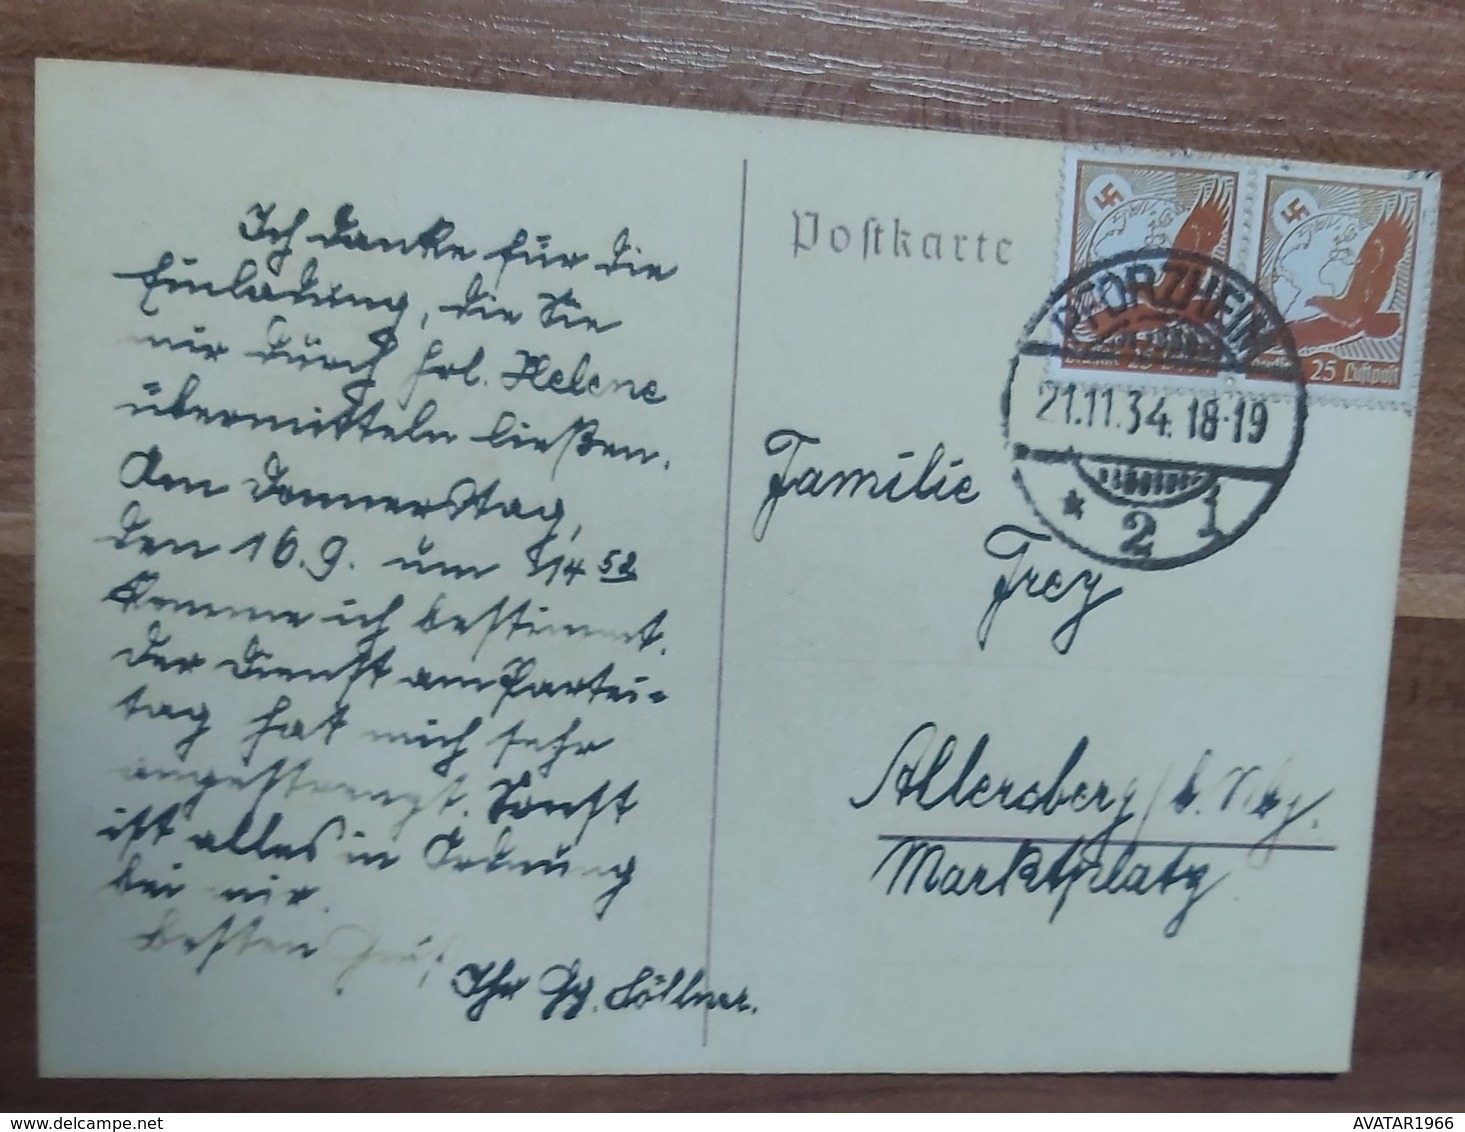 Ich danke für die
Einladung, die Sie
mir durch Frl. Helene
übermitteln ließen.
Am Donnerstag,
den 16.9. um 14 52
komme ich bestimmt.
Der Dienst am Partei-
tag hat mich sehr
angestrengt. Sonst
ist alles in Ordnung
bei mir.
Besten Gruß
Ihr Söllner.
Postkarte
25 Luftpost
25 Luftpost
PFORZHEIM
21.11.34. 18-19
* 2 1
Familie
Frey
Allersberg / b. Nbg.
Marktplatz
delcampe.net
AVATAR1966